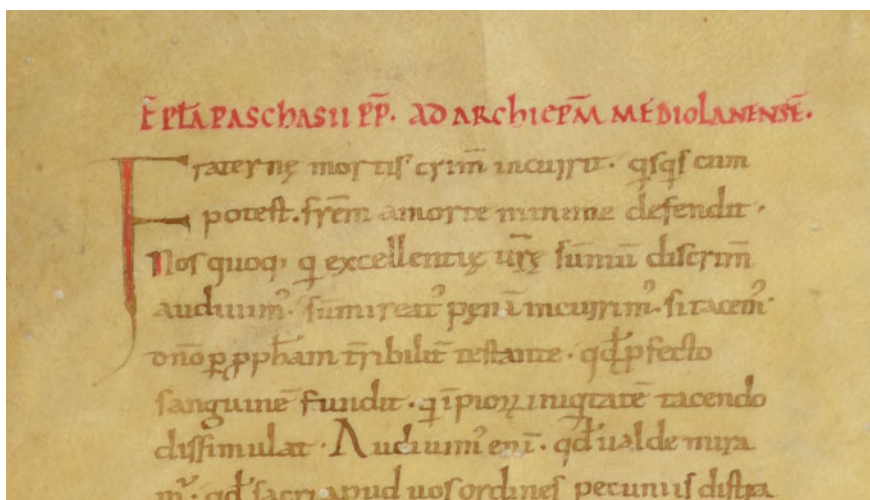 EP̄LA PASCHASII P̄P̄. AD ARCHIEP̄M MEDIOLANENSĒ.
Fraternę mortis crim̄ incurrit. q̇sq̇s cum
potest. fr̄em a morte minime defendit.
Nos quoq; q̇ excellentię ur̄ę sūmū discrim̄
audiuim᷒. sūmi reat᷒ pęnā incurrim᷒. si tacem᷒
dn̄o ꝑ ꝓph̄am t̄ribilit̄ testante. qd̄ ꝓfecto
sanguinē fundit. q̇ īpioꝝ iniq̇tatē tacendo
dissimulat. Audiuim᷒ enī. qd̄ ualde mira
m᷒. qd̄ sacri apud uos ordines pecuniis distra